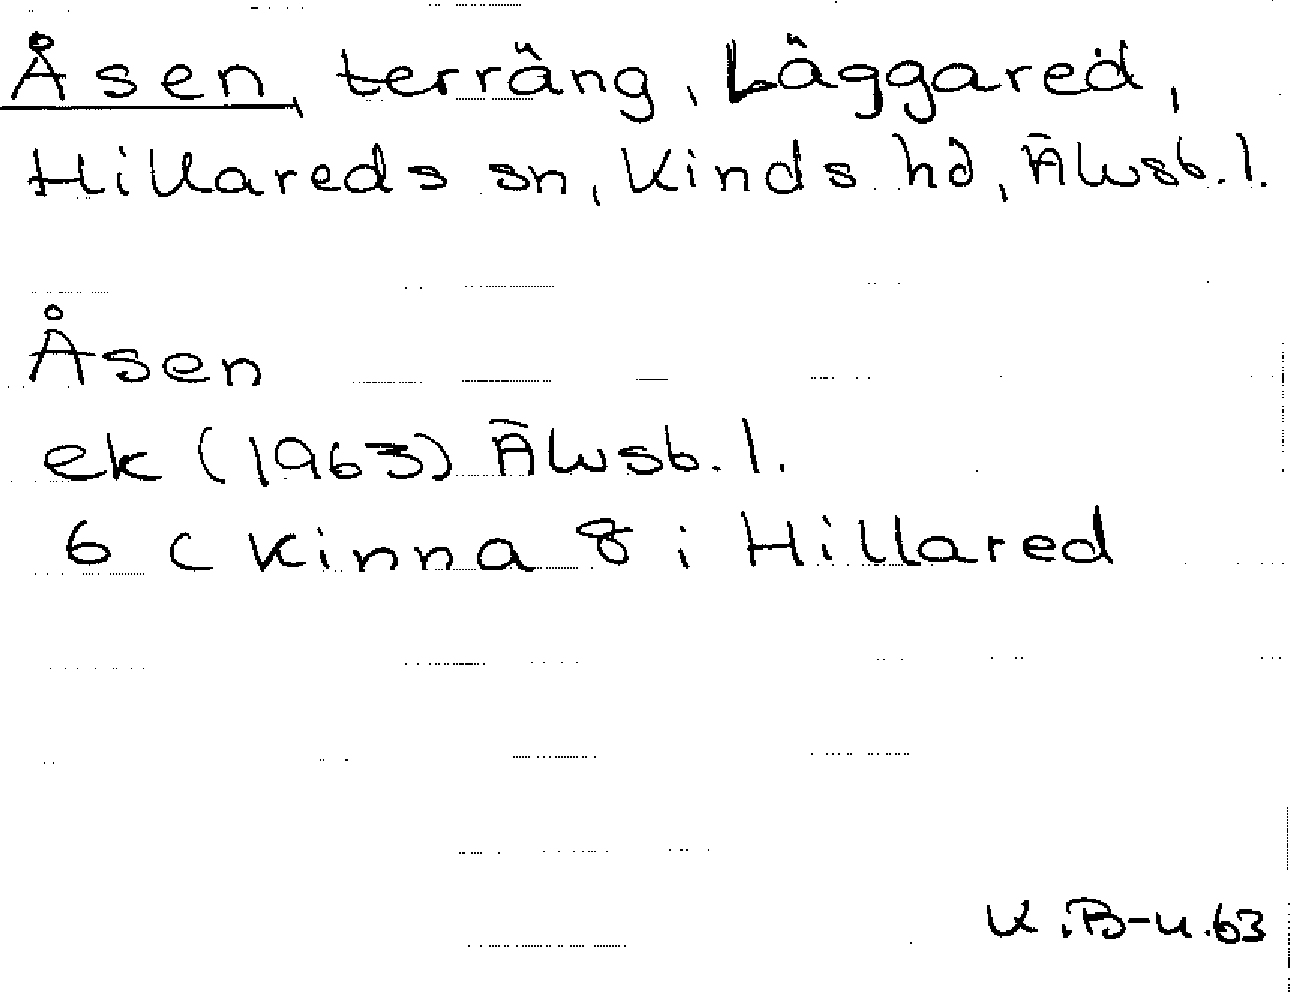 Åsen, terräng, Läggared,
Hillareds sn, Kinds hd, Älvsb. l.
Åsen
ek (1963) Älvsb. l.
6 C Kinna 8 i Hillared
K.B-u.63